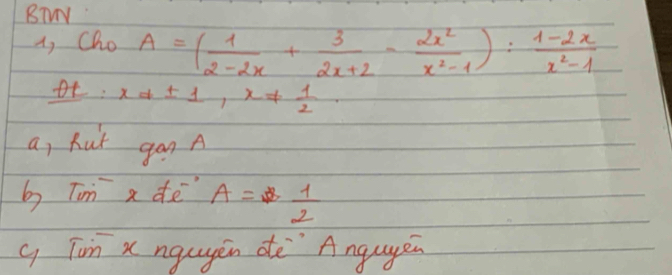 BTVN
1, Cho A = (1/(2-2x) + 3/(2x+2) - 2x²/(x²-1)) : (1-2x)/(x²-1)
Đk : x ≠ ± 1 , x ≠ 1/2 .
a, Rút gọn A
b, Tìm x để A = 1/2
c, Tìm x nguyên để A nguyên